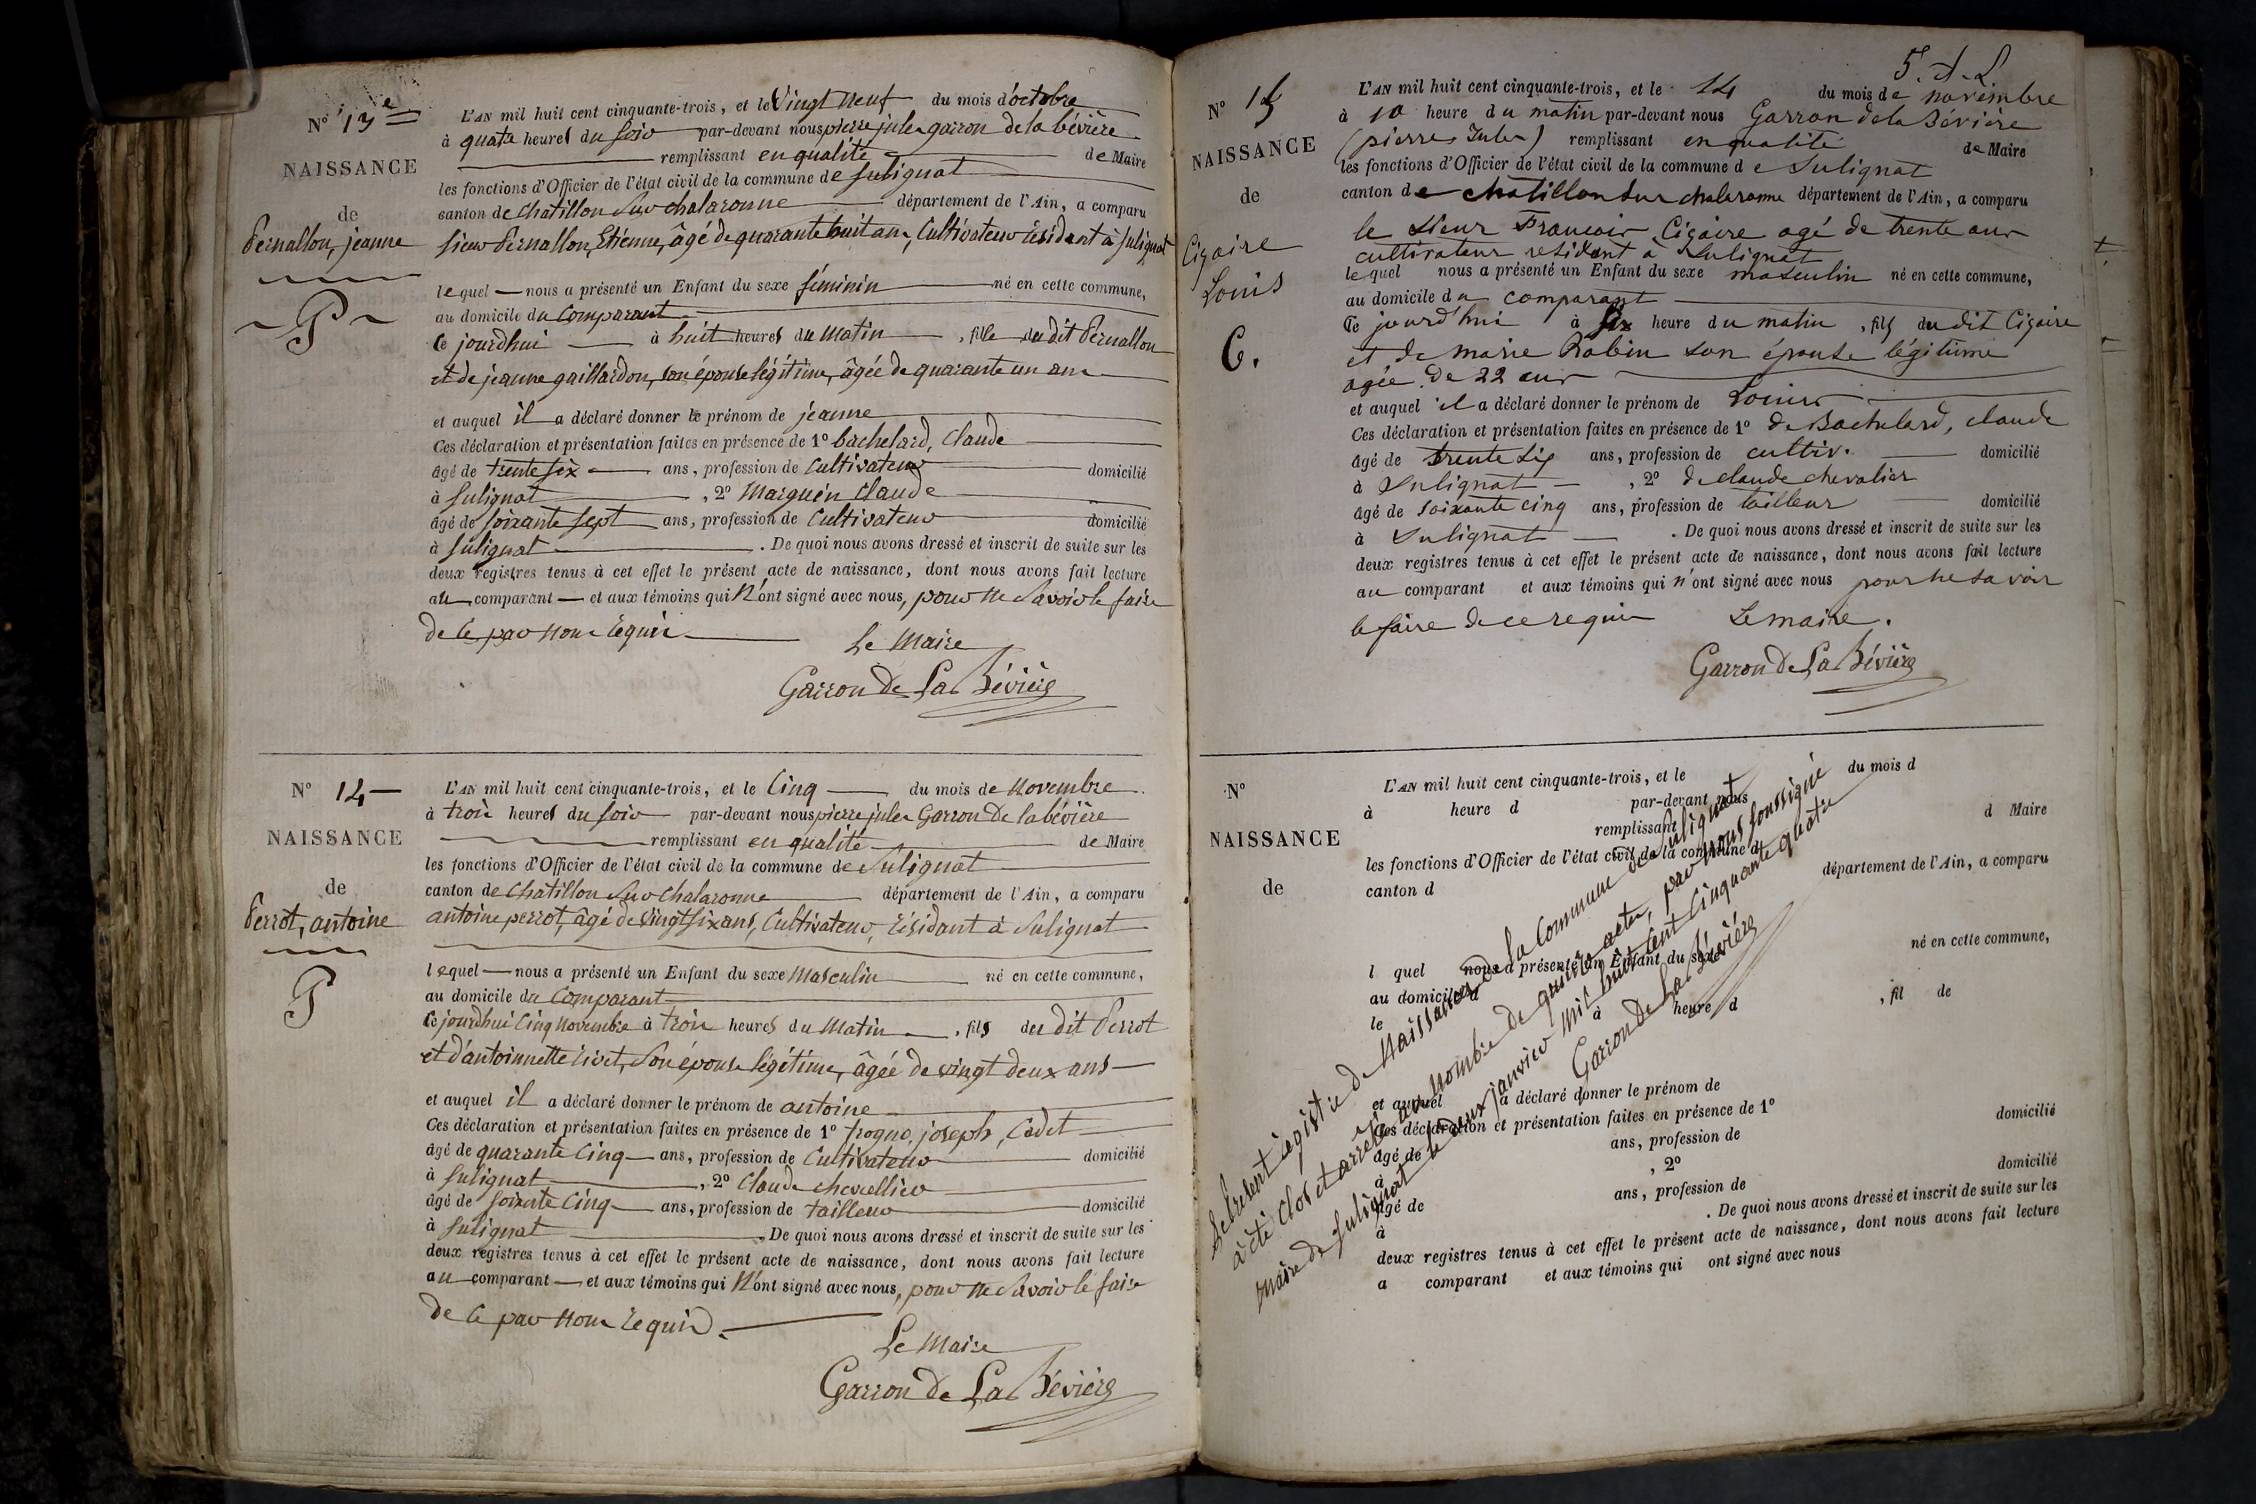 N° 13e
NAISSANCE
de
Pernallon, jeanne
P
L'AN mil huit cent cinquante-trois, et le Vingt neuf du mois d'octobre
à quatre heures du soir par-devant nous pierre jules garron de la bévière
remplissant en qualité de Maire
les fonctions d'Officier de l'état civil de la commune de Sulignat
canton de Chatillon Sur chalaronne département de l'Ain, a comparu
sieur Pernallon, Etienne, âgé de quarante huit ans, Cultivateur résidant à Sulignat
lequel nous a présenté un Enfant du sexe féminin né en cette commune,
au domicile du Comparant
Ce jourdhui à huit heures du Matin, fille du dit Pernallon
et de jeanne gaillardon, son épouse légitime, âgée de quarante un ans
et auquel il a déclaré donner le prénom de jeanne
Ces déclaration et présentation faites en présence de 1° bachelard, Claude
âgé de trente six ans, profession de Cultivateur domicilié
à Sulignat, 2° Marguin Claude
âgé de soixante sept ans, profession de Cultivateur domicilié
à Sulignat. De quoi nous avons dressé et inscrit de suite sur les
deux registres tenus à cet effet le présent acte de naissance, dont nous avons fait lecture
au comparant et aux témoins qui N'ont signé avec nous, pour ne Savoir le faire
de Ce par Nous requis
Le Maire
Garron de La Bévière
N° 14
NAISSANCE
de
Perrot, antoine
P
L'AN mil huit cent cinquante-trois, et le Cinq du mois de Novembre
à trois heures du soir par-devant nous pierre jules Garron De la bévière
remplissant en qualité de Maire
les fonctions d'Officier de l'état civil de la commune de Sulignat
canton de Chatillon Sur Chalaronne département de l'Ain, a comparu
antoine perrot, âgé de Vingt six ans, Cultivateur, résidant à Sulignat
lequel nous a présenté un Enfant du sexe Masculin né en cette commune,
au domicile du Comparant
Ce jourdhui Cinq Novembre à trois heures du Matin, fils du dit Perrot
et d'antoinnette livet, Son épouse légitime, âgée de vingt deux ans
et auquel il a déclaré donner le prénom de antoine
Ces déclaration et présentation faites en présence de 1° trogno, joseph, Cadet
âgé de quarante Cinq ans, profession de Cultivateur domicilié
à Sulignat, 2° Claude chevallier
âgé de soixante Cinq ans, profession de tailleur domicilié
à Sulignat. De quoi nous avons dressé et inscrit de suite sur les
deux registres tenus à cet effet le présent acte de naissance, dont nous avons fait lecture
au comparant et aux témoins qui N'ont signé avec nous, pour ne Savoir le faire
de Ce par Nous requis.
Le Maire
Garron de La Bévière
N° 15
NAISSANCE
de
Cigaire
Louis
C.
L'AN mil huit cent cinquante-trois, et le 14 du mois de novembre
à 10 heure du matin par-devant nous Garron dela Bévière
(pierre Jules) remplissant en qualité de Maire
les fonctions d'Officier de l'état civil de la commune de Sulignat
canton de chatillon sur chalaronne département de l'Ain, a comparu
le Sieur Francois Cigaire agé de trente ans
cultivateur résidant à Sulignat
lequel nous a présenté un Enfant du sexe masculin né en cette commune,
au domicile du comparant
Ce jourd'hui à six heure du matin, fils du dit Cigaire
et de marie Robin son épouse légitime
agée de 22 ans
et auquel il a déclaré donner le prénom de Louis
Ces déclaration et présentation faites en présence de 1° de Bachelard, claude
âgé de trente six ans, profession de cultiv. domicilié
à Sulignat, 2° de claude chevalier
âgé de soixante cinq ans, profession de tailleur domicilié
à Sulignat. De quoi nous avons dressé et inscrit de suite sur les
deux registres tenus à cet effet le présent acte de naissance, dont nous avons fait lecture
au comparant et aux témoins qui n'ont signé avec nous pour ne savoir
le faire de ce requis Le maire.
Garron de La Bévière
N°
NAISSANCE
de
L'AN mil huit cent cinquante-trois, et le du mois d
à heure d par-devant nous
remplissant d Maire
les fonctions d'Officier de l'état civil de la commune d
canton d département de l'Ain, a comparu
l quel nous a présenté un Enfant du sexe né en cette commune,
au domicile d
le à heure d, fil de
et auquel a déclaré donner le prénom de
Ces déclaration et présentation faites en présence de 1°
âgé de ans, profession de domicilié
à, 2°
âgé de ans, profession de domicilié
à. De quoi nous avons dressé et inscrit de suite sur les
deux registres tenus à cet effet le présent acte de naissance, dont nous avons fait lecture
a comparant et aux témoins qui ont signé avec nous
Le Présent registre de Naissances de la Commune de Sulignat
à été Clos et arrêté au Nombre de quinze actes, par Nous Soussigné
Maire de Sulignat le deux janvier Mil huit Cent Cinquante quatre
Garron de La Bévière